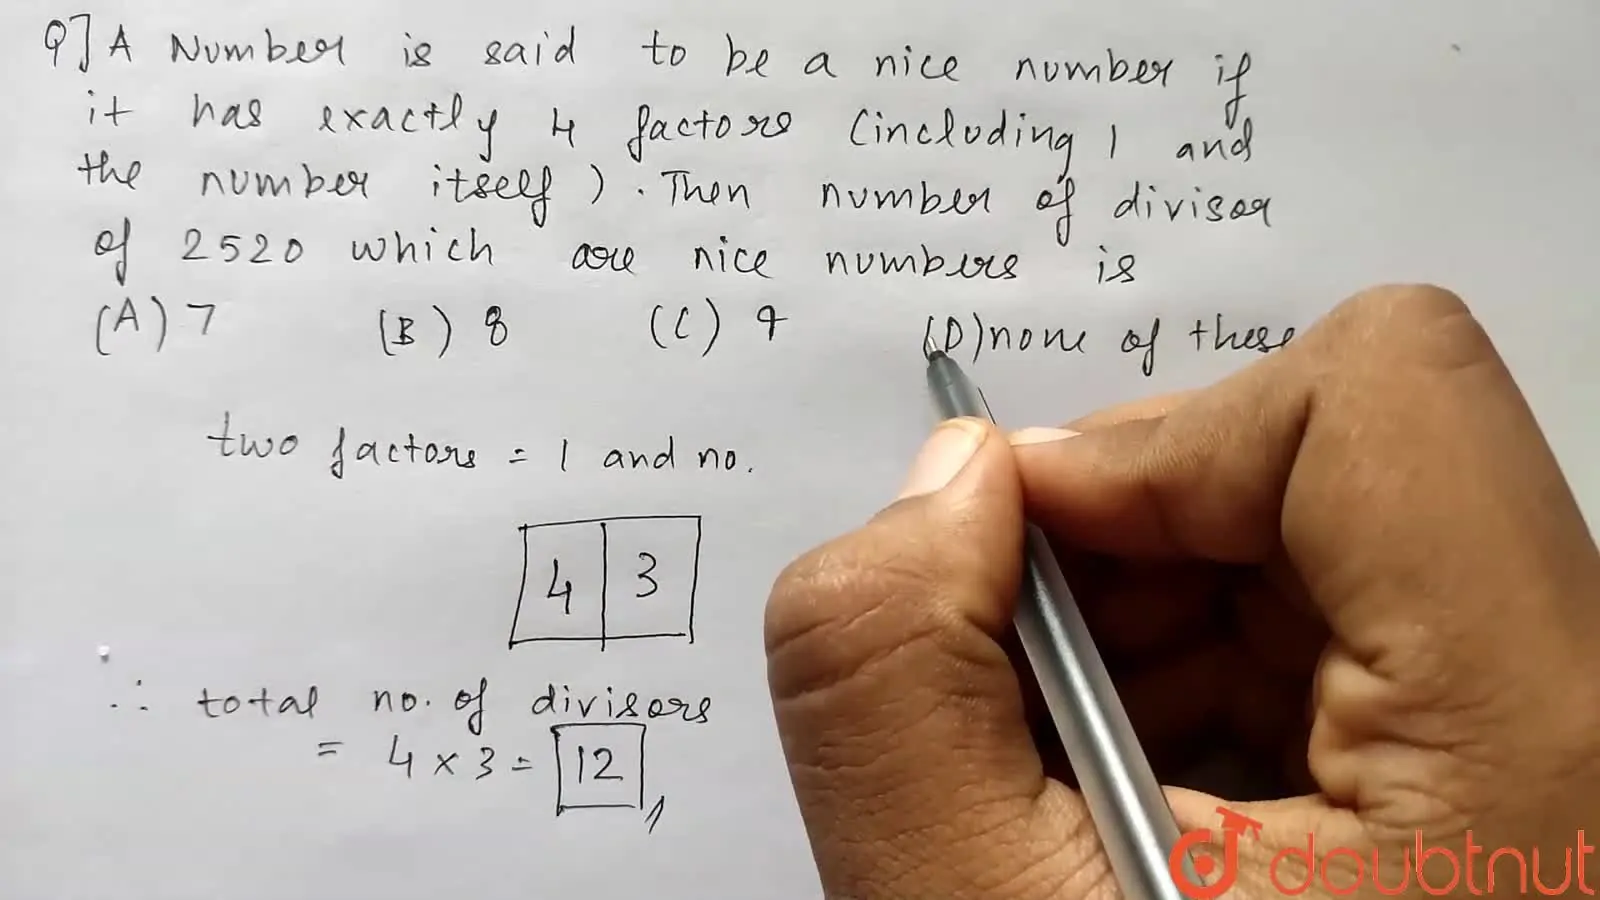 Q] A Number is said to be a nice number if
it has exactly 4 factors (including 1 and
the number itself). Then number of divisor
of 2520 which are nice numbers is
(A) 7 (B) 8 (C) 9 (D) none of these
two factors = 1 and no.
4 3
∴ total no. of divisors
= 4 × 3 = 12
doubtnut